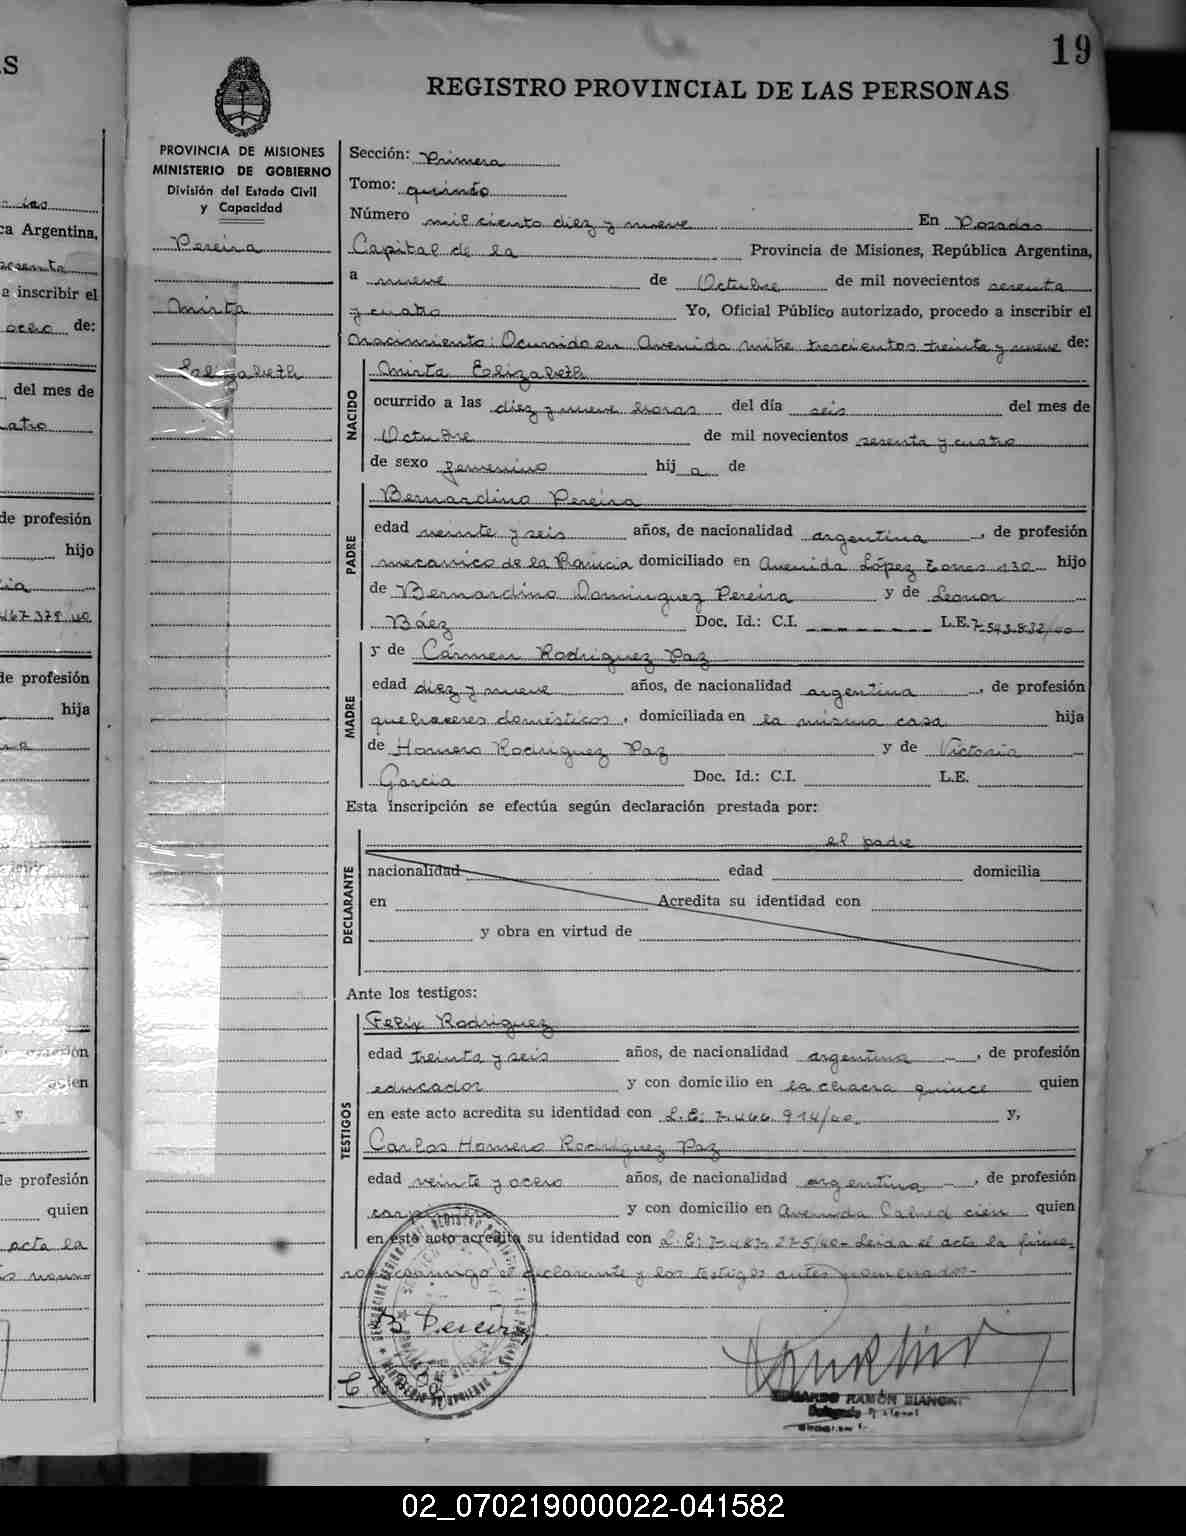 19
REGISTRO PROVINCIAL DE LAS PERSONAS
PROVINCIA DE MISIONES
MINISTERIO DE GOBIERNO
División del Estado Civil
y Capacidad
Pereira
Mirta
Elizabeth
Sección: Primera
Tomo: quinto
Número mil ciento diez y nueve En Posadas
Capital de la Provincia de Misiones, República Argentina,
a nueve de Octubre de mil novecientos sesenta
y cuatro Yo, Oficial Público autorizado, procedo a inscribir el
Nacimiento: Ocurrido en Avenida Mitre trescientos treinta y nueve de:
NACIDO
Mirta Elizabeth
ocurrido a las diez y nueve horas del día seis del mes de
Octubre de mil novecientos sesenta y cuatro
de sexo femenino hij a de
PADRE
Bernardino Pereira
edad veinte y seis años, de nacionalidad argentina, de profesión
mecánico de la domiciliado en Avenida López Torres 130 hijo
de Bernardino Dominguez Pereira y de Leonor
Báez Doc. Id.: C.I. L.E. 7.543.832/00
MADRE
y de Cármen Rodriguez Paz
edad diez y nueve años, de nacionalidad argentina, de profesión
quehaceres domésticos, domiciliada en la misma casa hija
de Homero Rodriguez Paz y de Victoria
Garcia Doc. Id.: C.I. L.E.
Esta inscripción se efectúa según declaración prestada por:
DECLARANTE
el padre
nacionalidad edad domicilia
en Acredita su identidad con
y obra en virtud de
Ante los testigos:
TESTIGOS
Felix Rodriguez
edad treinta y seis años, de nacionalidad argentina, de profesión
educador y con domicilio en la chacra quince quien
en este acto acredita su identidad con L.E: 7.466.914/00. y,
Carlos Homero Rodriguez Paz
edad veinte y ocho años, de nacionalidad argentina, de profesión
y con domicilio en Avenida cien quien
en este acto acredita su identidad con L.E: 7.487.275/00- Leida el acta la firma
conmigo el declarante y los testigos antes nomenados-
B Pereira
EDUARDO RAMÓN BIANCHI
02_070219000022-041582